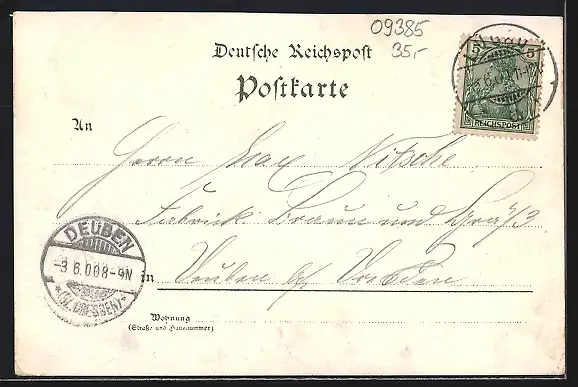 09385
35,-
Deutsche Reichspost
Postkarte
5 5
REICHSPOST
An
Herrn Max Nitsche
Fabrick Braun und Graf
DEUBEN
-3 6.00 8-9N
*(Bz. DRESDEN)*
in Deuben b/ Dresden
Wohnung
(Straße und Hausnummer)